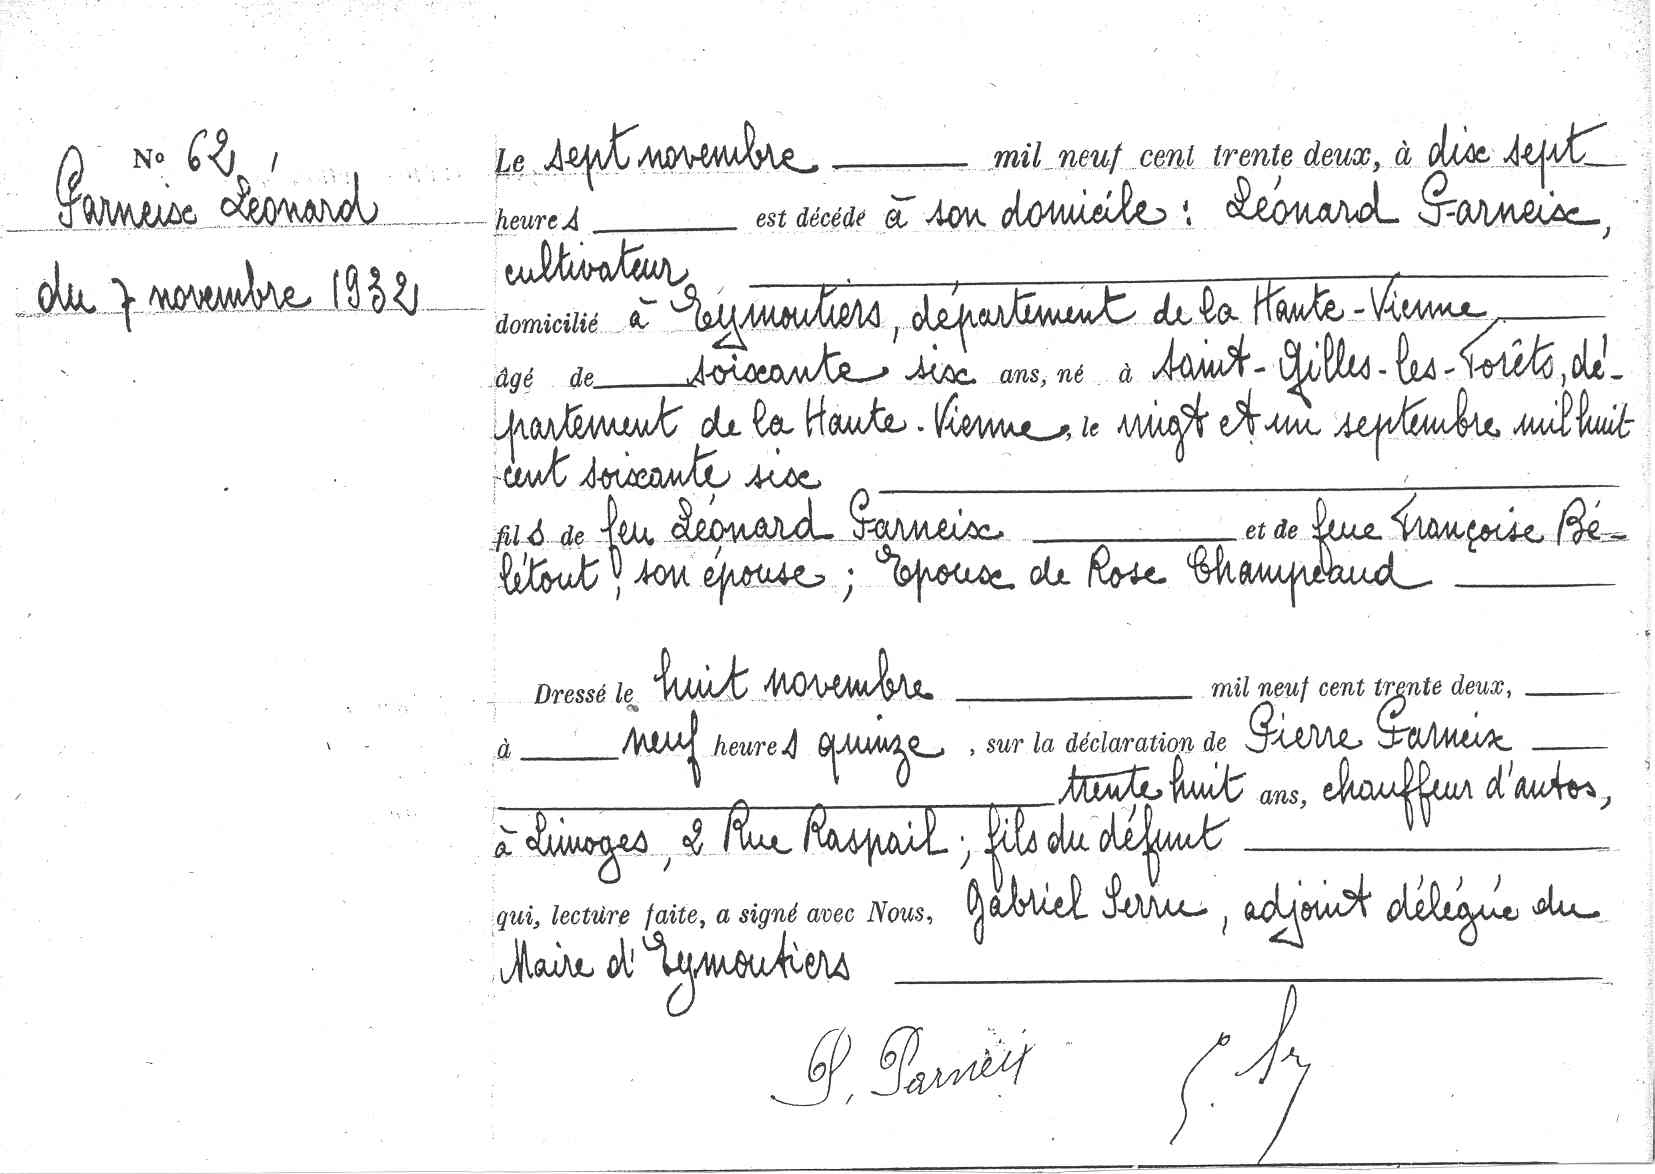 N° 62
Parneix Léonard
du 7 novembre 1932
Le sept novembre mil neuf cent trente deux, à dix sept
heures est décédé à son domicile : Léonard Parneix,
cultivateur
domicilié à Eymoutiers, département de la Haute-Vienne
âgé de soixante six ans, né à Saint-Gilles-les-Forêts, dé-
partement de la Haute-Vienne, le vingt et un septembre mil huit
cent soixante six
fils de feu Léonard Parneix et de feue Françoise Bé-
létout, son épouse ; Epoux de Rose Champeaud
Dressé le huit novembre mil neuf cent trente deux,
à neuf heures quinze, sur la déclaration de Pierre Parneix
trente huit ans, chauffeur d'autos,
à Limoges, 2 Rue Raspail ; fils du défunt
qui, lecture faite, a signé avec Nous, Gabriel Serru, adjoint délégué du
Maire d'Eymoutiers
P. Parneix